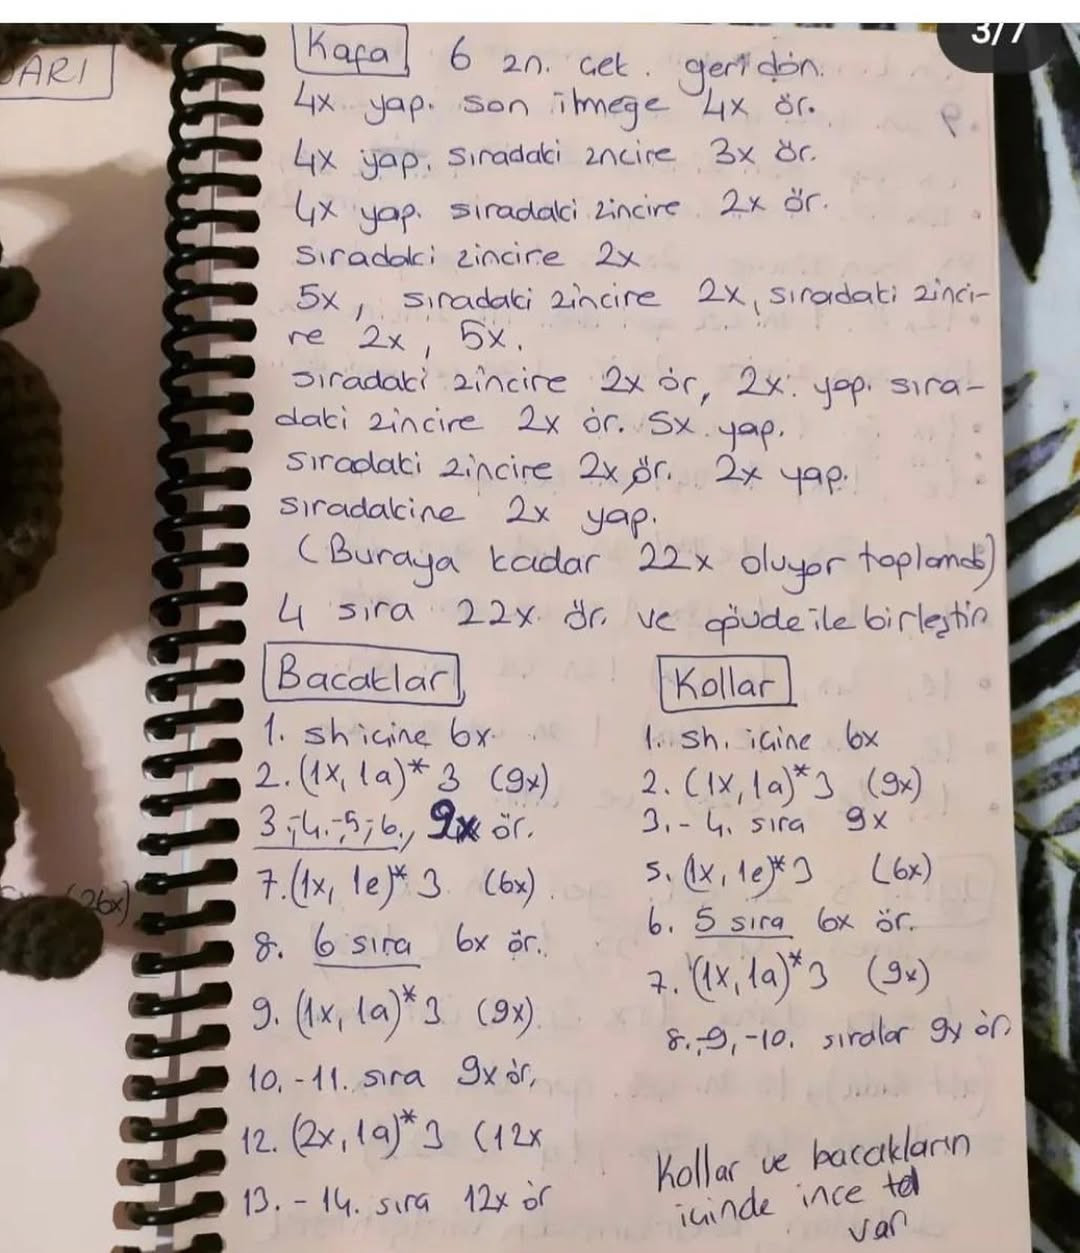 3/7
ARI
Kafa 6 zn. çek. geri dön.
4x yap. son ilmeğe 4x ör.
4x yap. sıradaki zncire 3x ör.
4x yap. sıradaki zincire 2x ör.
sıradaki zincire 2x
5x, sıradaki zincire 2x, sıradaki zinci-
re 2x, 5x.
sıradaki zincire 2x ör, 2x yap. sıra-
daki zincire 2x ör. 5x yap.
sıradaki zincire 2x ör. 2x yap.
sıradakine 2x yap.
(Buraya kadar 22x oluyor toplamda)
4 sıra 22x ör. ve gövde ile birleştir
Bacaklar
1. sh içine 6x
2. (1x, 1a)* 3 (9x)
3.-4.-5.-6., 9x ör.
7. (1x, 1e)* 3 (6x)
8. 6 sıra 6x ör.
9. (1x, 1a)* 3 (9x)
10.-11. sıra 9x ör.
12. (2x, 1a)* 3 (12x
13. - 14. sıra 12x ör
Kollar
1. sh. içine 6x
2. (1x, 1a)* 3 (9x)
3.- 4. sıra 9x
5. (1x, 1e)* 3 (6x)
6. 5 sıra 6x ör.
7. (1x, 1a)* 3 (9x)
8.-9.-10. sıralar 9x ör
Kollar ve bacakların
içinde ince tel
var
(26x)